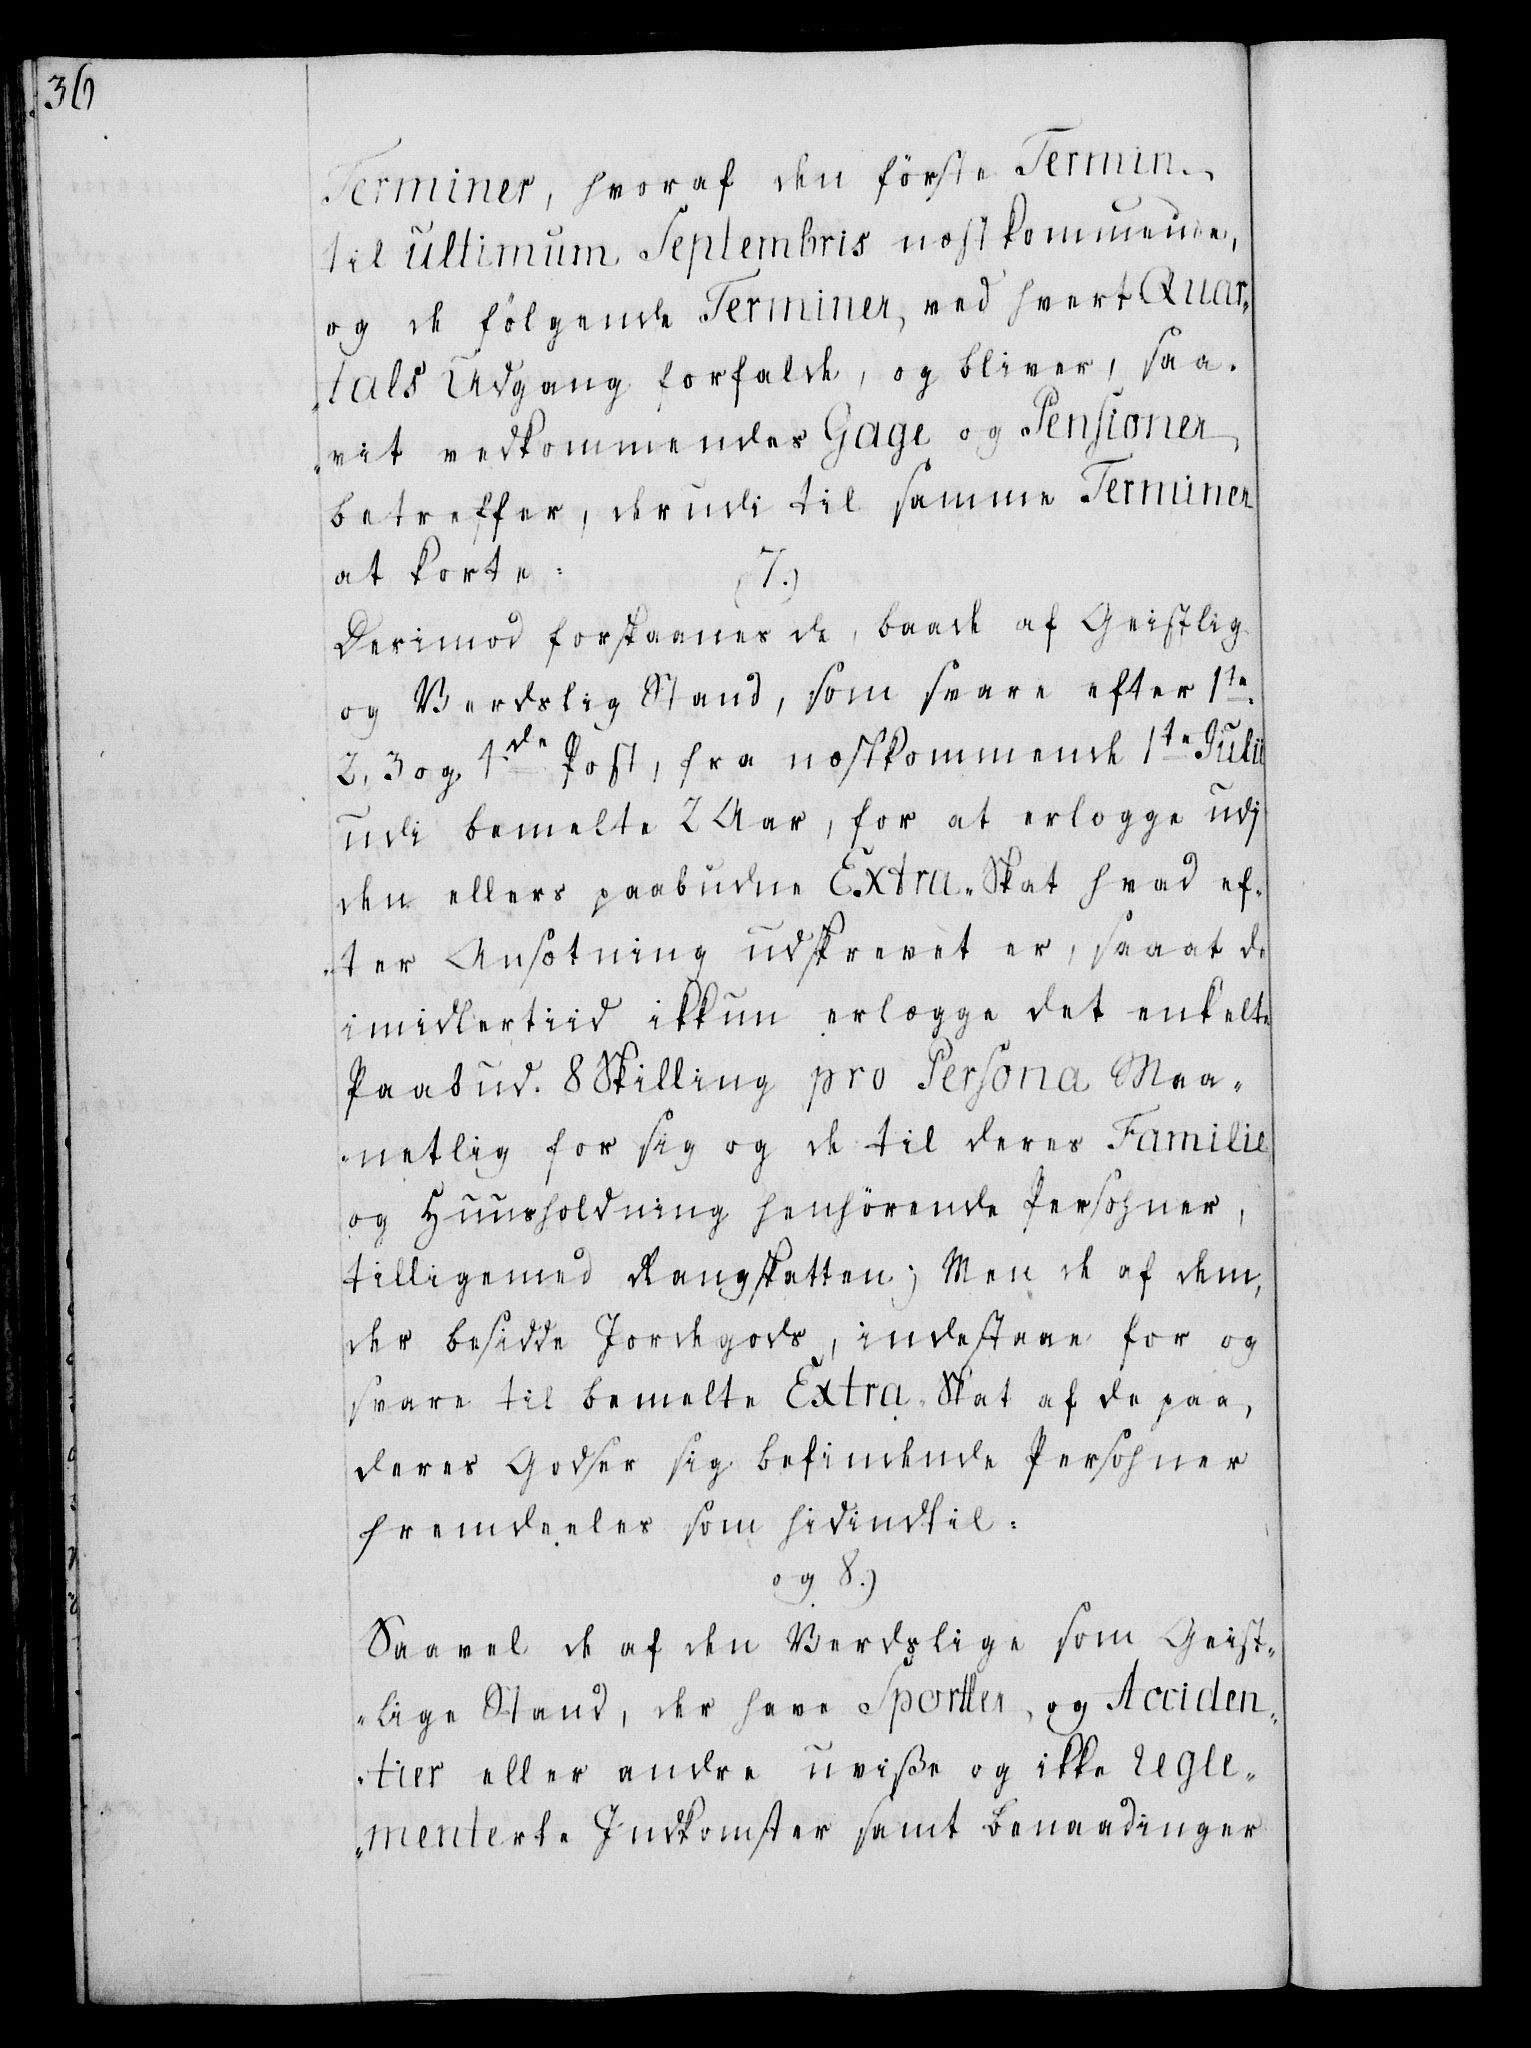 36
Terminer, hvoraf den förste Termin
til ultimum Septembris næstkommende,
og de fölgende Terminer, ved hvert Quar„
„tals Udgang forfalde, og bliver, saa„
„vit vedkommendes Gage og Pensioner
betreffer, derudi til samme Terminer
at korte:
(7.)
Derimod forskaanes de, baade af Geistlig
og Verdslig Stand, som svare efter 1te
2, 3 og 4de Post, fra næstkommende 1te Julii
udi bemelte 2 Aar, for at erlægge udj
den ellers paabudne Extra„Skat hvad ef„
„ter Ansætning udskrevet er, saaat de
imidlertiid ikkun erlægge det enkelte
Paabud. 8 Skilling pro Persona Maa„
„netlig for sig og de til deres Familie
og Huusholdning henhörende Persohner,
tilligemed Rangskatten; Men de af dem,
der besidde Jordegods, indestaae for og
svare til bemelte Extra„Skat af de paa
deres Godser sig befindende Persohner
fremdeeles som hidindtil:
og 8.)
Saavel de af den Verdslige som Geist„
„lige Stand, der have Sportler og Acciden„
„tier eller andre uviße og ikke regle„
„menterte Indkomster samt benaadinger